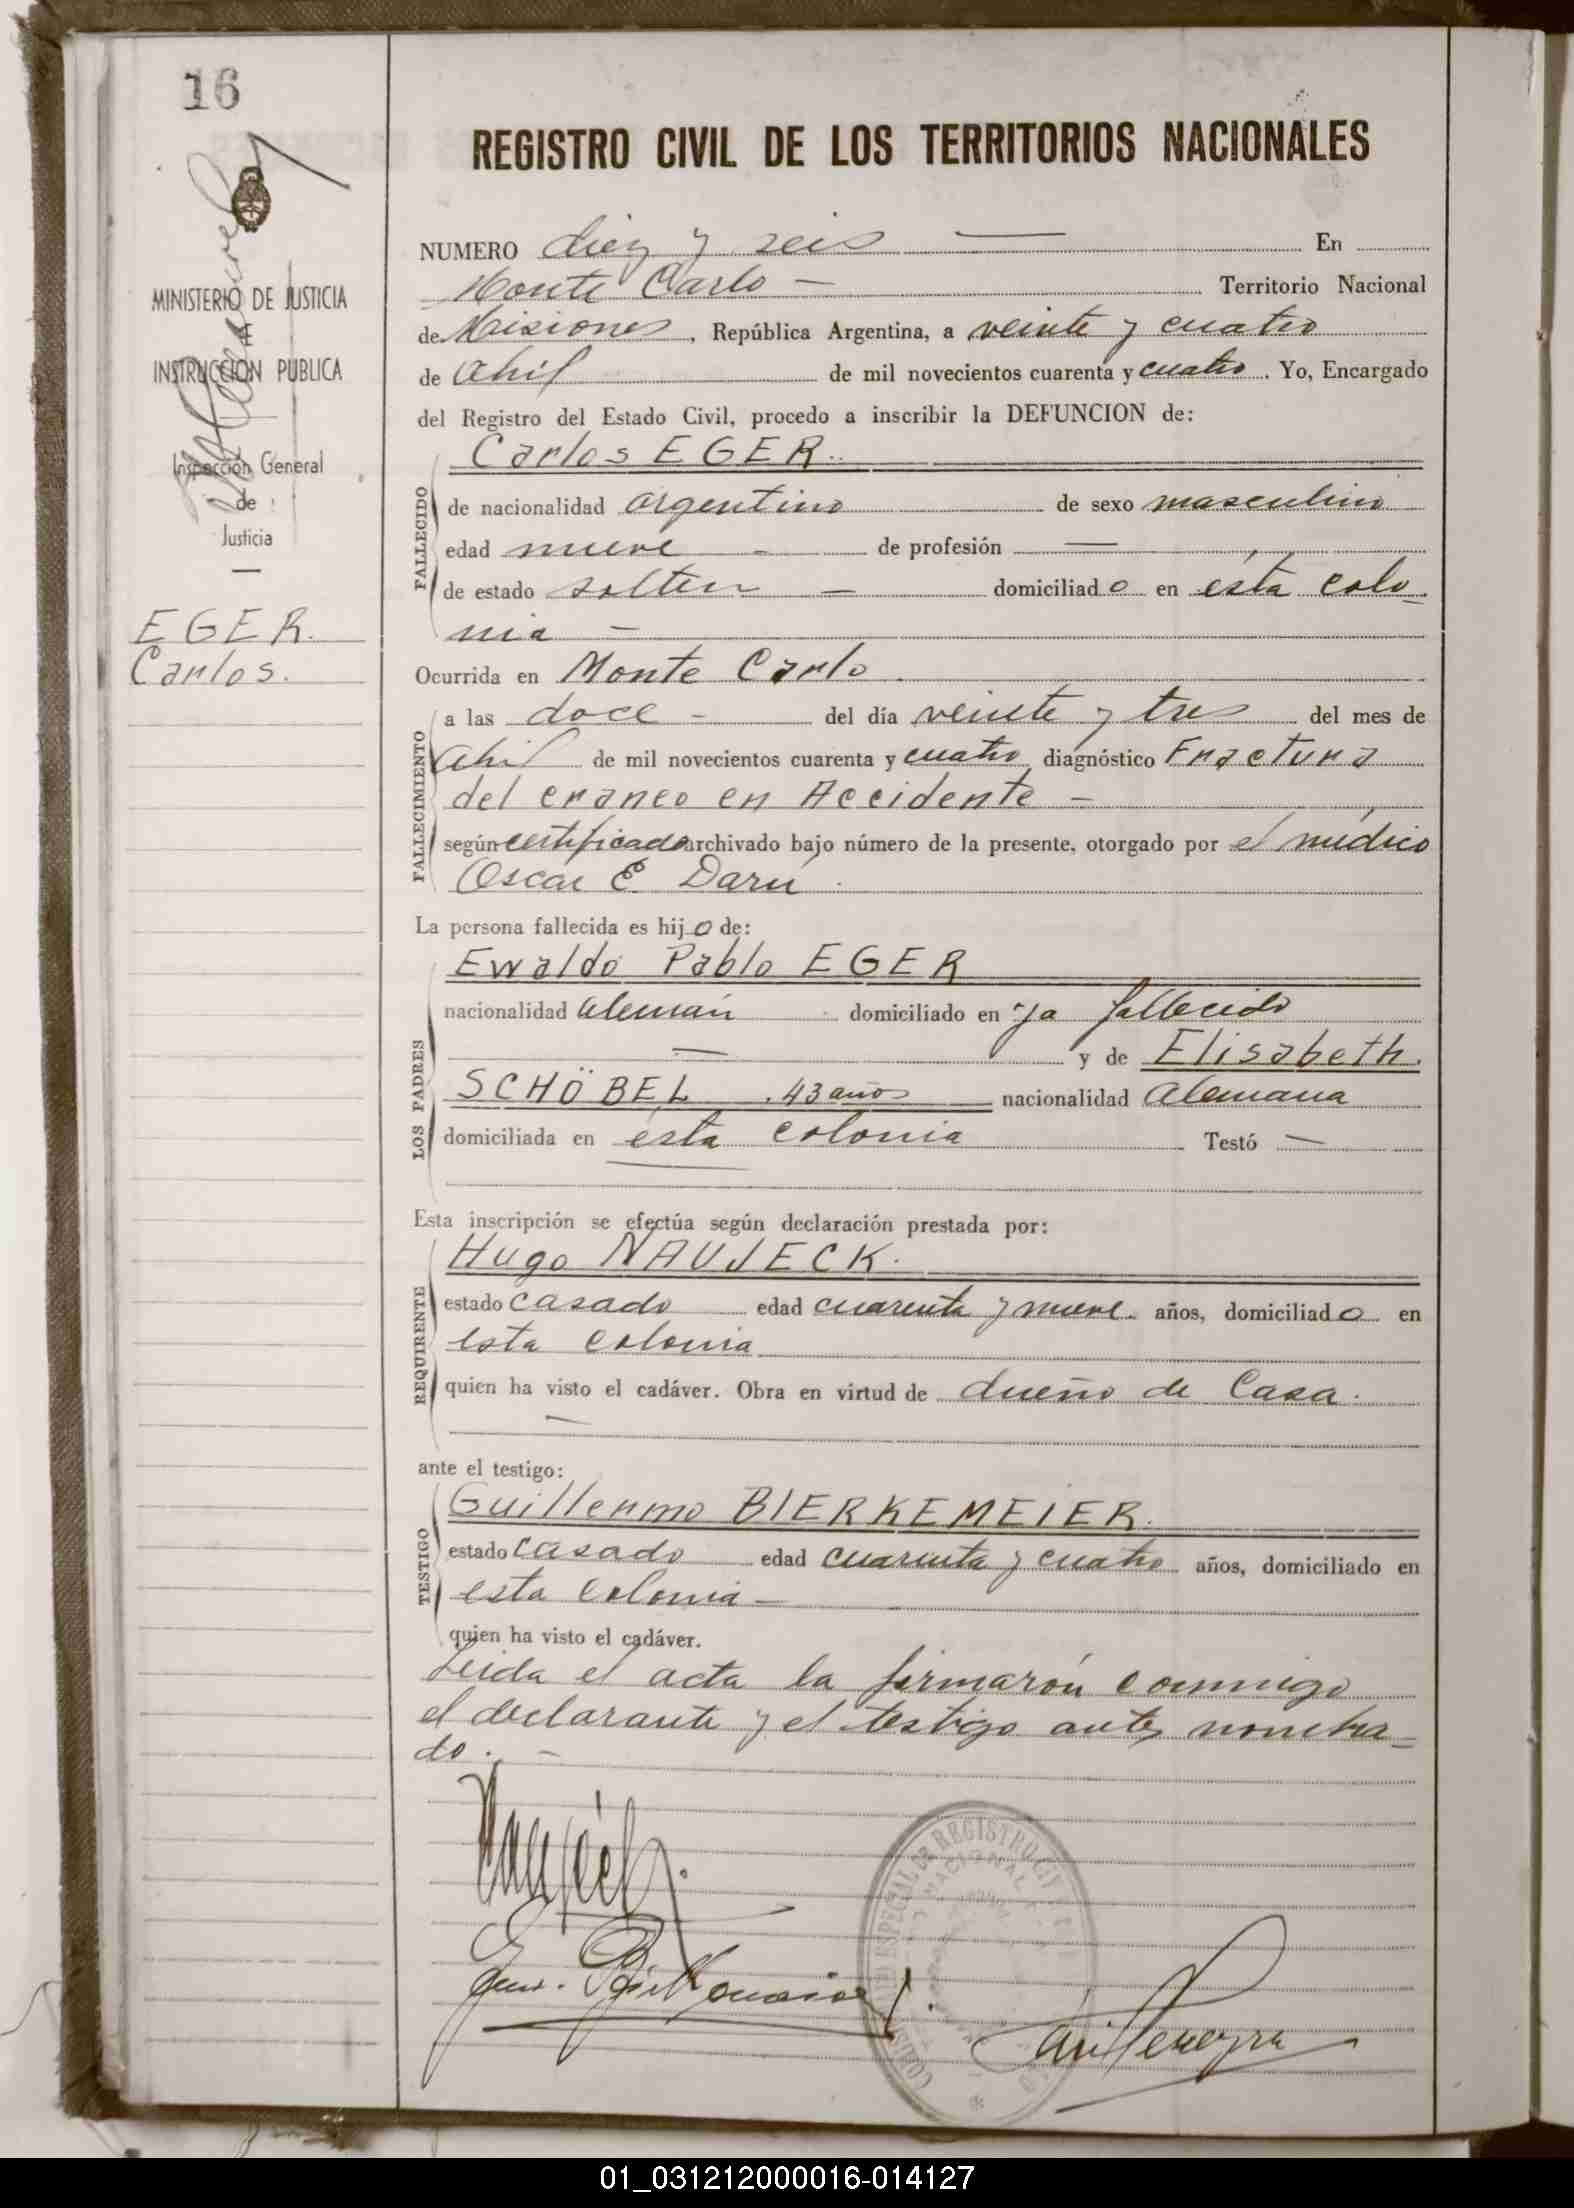 16
MINISTERIO DE JUSTICIA
E
INSTRUCCION PUBLICA
Inspección General
de
Justicia
EGER.
Carlos.
REGISTRO CIVIL DE LOS TERRITORIOS NACIONALES
NUMERO diez y seis — En
Monte Carlo — Territorio Nacional
de Misiones, República Argentina, a veinte y cuatro
de Abril de mil novecientos cuarenta y cuatro. Yo, Encargado
del Registro del Estado Civil, procedo a inscribir la DEFUNCION de:
Carlos EGER.
FALLECIDO
de nacionalidad argentino de sexo masculino
edad nueve - de profesión —
de estado soltero — domiciliado en ésta colo-
nia —
Ocurrida en Monte Carlo
FALLECIMIENTO
a las doce - del día veinte y tres del mes de
Abril de mil novecientos cuarenta y cuatro diagnóstico Fractura
del craneo en Accidente —
según certificado archivado bajo número de la presente, otorgado por el médico
Oscar E. Darú.
La persona fallecida es hijo de:
LOS PADRES
Ewaldo Pablo EGER
nacionalidad alemán domiciliado en ya fallecido
— y de Elisabeth
SCHÖBEL . 43 años nacionalidad alemana
domiciliada en ésta colonia Testó —
Esta inscripción se efectúa según declaración prestada por:
REQUIRENTE
Hugo NAUJECK.
estado casado edad cuarenta y nueve. años, domiciliado en
esta colonia
quien ha visto el cadáver. Obra en virtud de dueño de Casa.
—
ante el testigo:
TESTIGO
Guillermo BIERKEMEIER.
estado casado edad cuarenta y cuatro años, domiciliado en
esta colonia —
quien ha visto el cadáver.
Leida el acta la firmarón conmigo
el declarante y el testigo antes nombra-
do. —
01_031212000016-014127